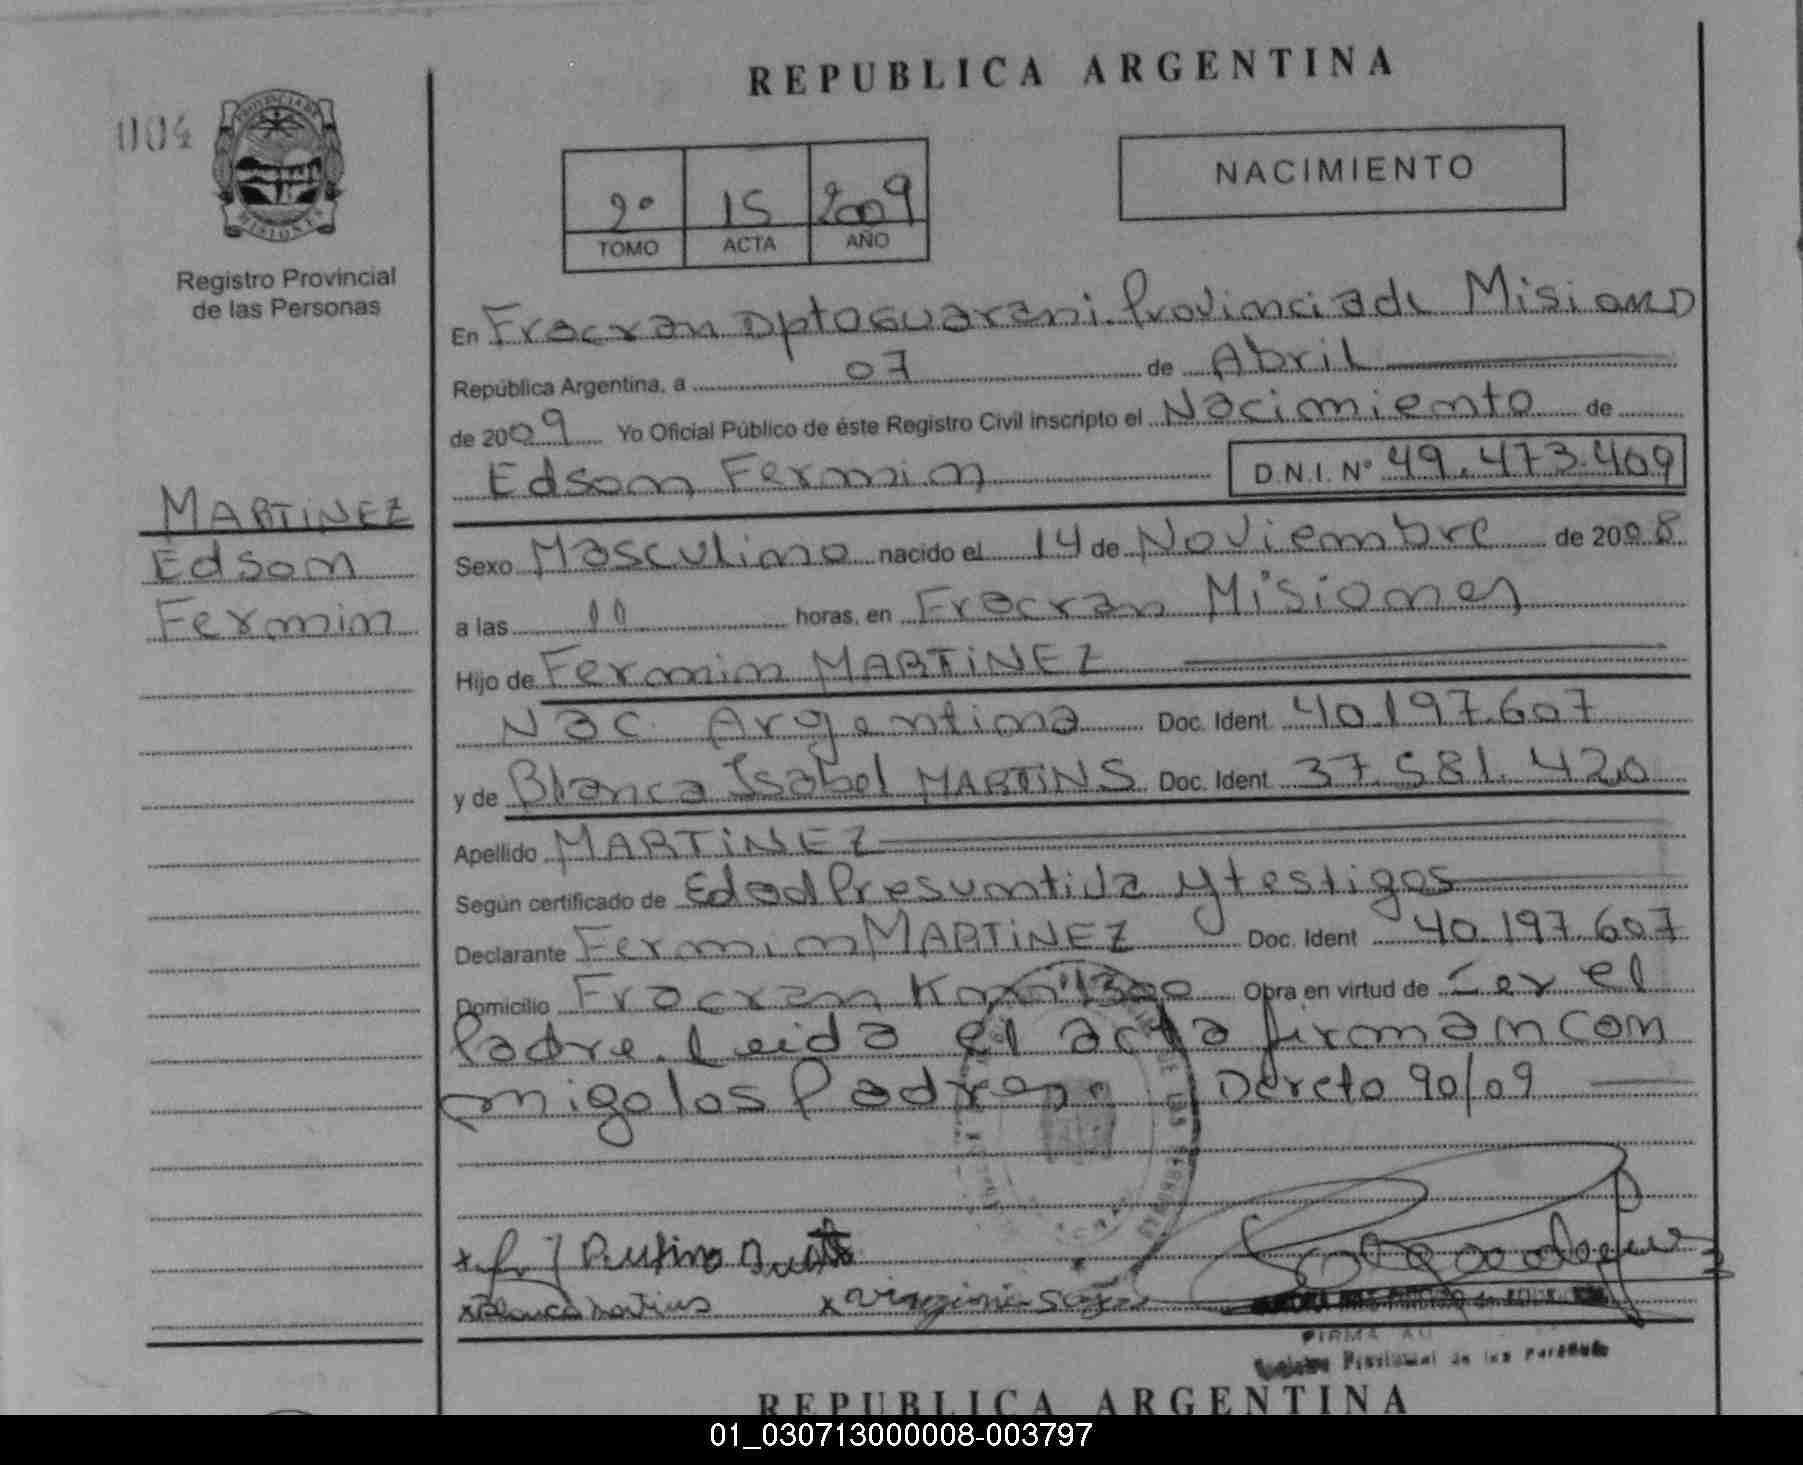 REPUBLICA ARGENTINA
004
PROVINCIA DE
MISIONES
Registro Provincial
de las Personas
2º 15 2009
TOMO ACTA AÑO
NACIMIENTO
En Fracran Dpto Guarani. Provincia de Misiones
República Argentina, a 07 de Abril
de 2009 Yo Oficial Público de éste Registro Civil inscripto el Nacimiento de
Edsom Fermin D.N.I. Nº 49.473.409
MARTiNEZ
Edsom
Fermin
Sexo Masculino nacido el 14 de Noviembre de 2008
a las 11 horas, en Fracran Misiones
Hijo de Fermin MARTiNEZ
Nac. Argentina Doc. Ident. 40.197.607
y de Blanca Isabel MARTiNS Doc. Ident. 37.581.420
Apellido MARTiNEZ
Según certificado de Edad Presuntiva y testigos
Declarante Fermin MARTiNEZ Doc. Ident 40.197.607
Domicilio Fracran Km 1300 Obra en virtud de Ser el
Padre. Leida el acta firman con
migo los Padres. Decreto 90/09
x Rufino
x Blanca Martins x Virginia
FIRMA AU
Registro Provincial de las Personas
REPUBLICA ARGENTINA
01_030713000008-003797